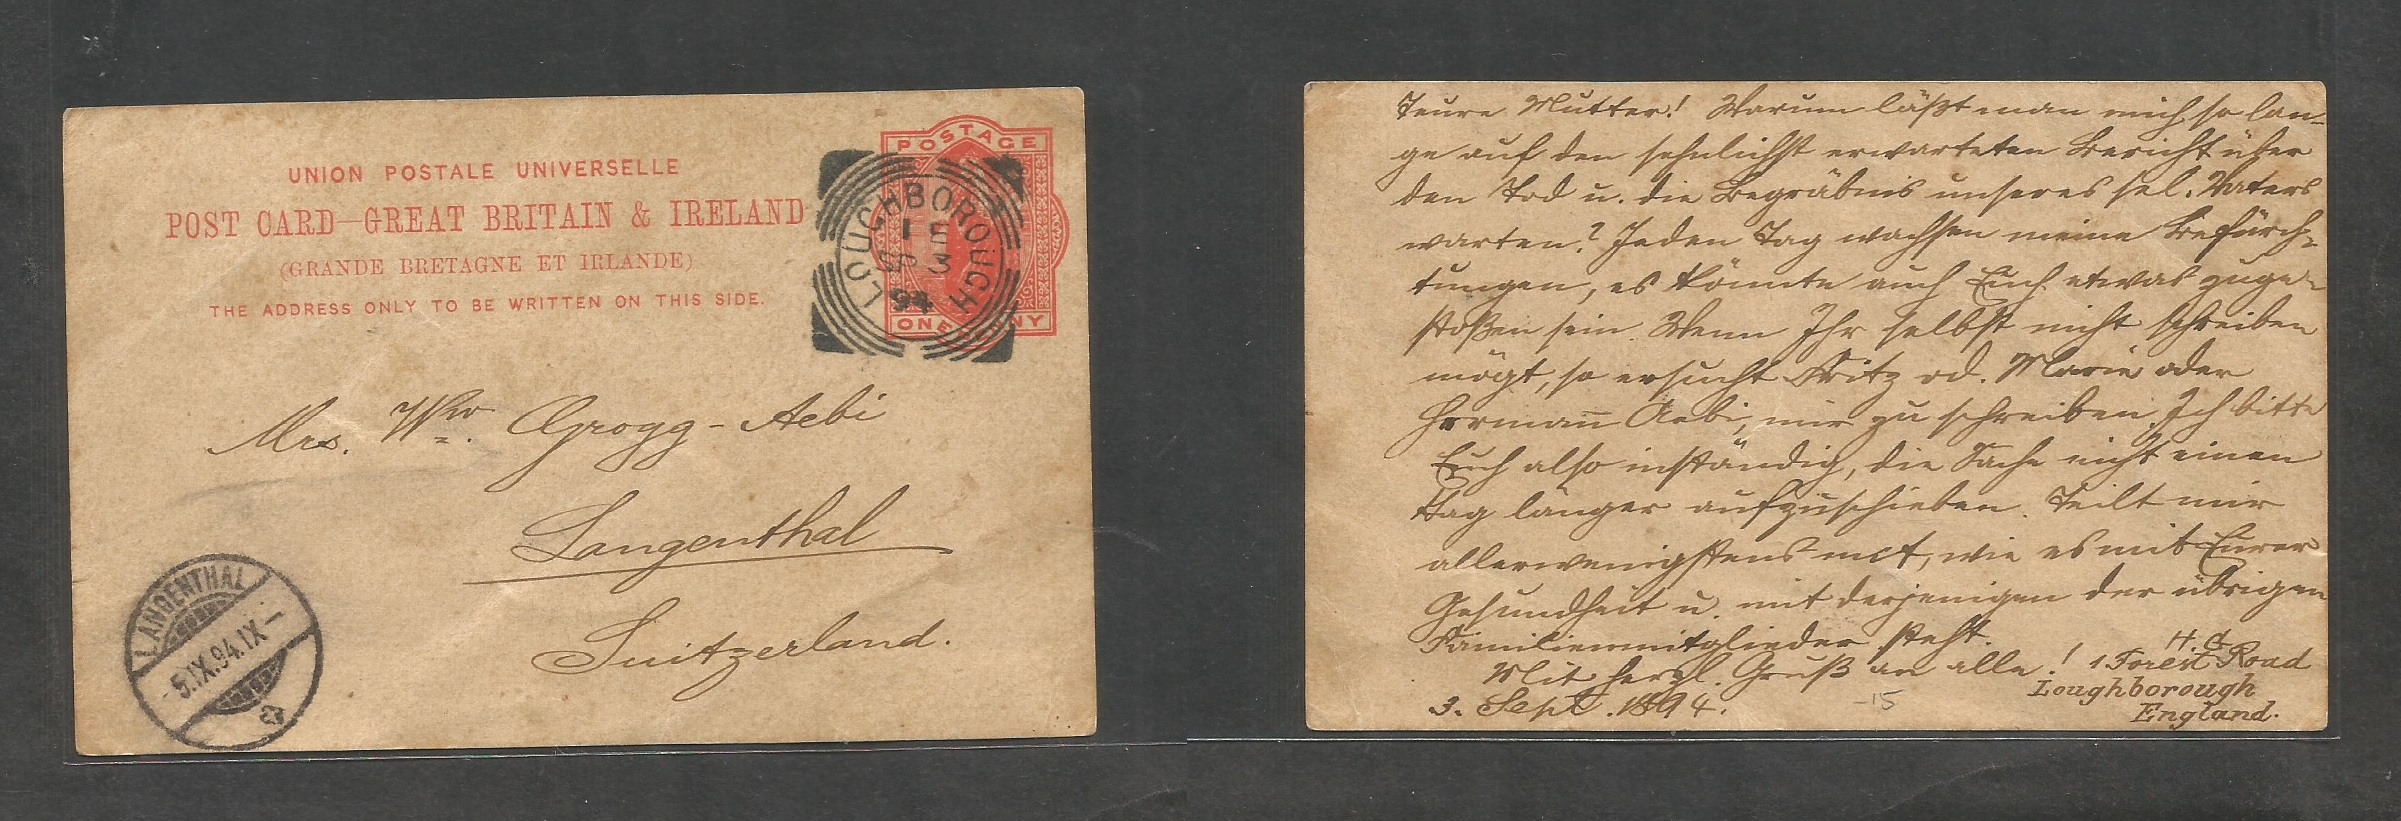 UNION POSTALE UNIVERSELLE
POST CARD—GREAT BRITAIN & IRELAND
(GRANDE BRETAGNE ET IRLANDE)
THE ADDRESS ONLY TO BE WRITTEN ON THIS SIDE.
POSTAGE
ONE PENNY
LOUGHBOROUGH
1 E
SP 3
94
Mrs. Ww. Grogg-Aebi
Langenthal
Suitzerland.
LANGENTHAL
-5.IX.94.IX-
Teure Mutter! Warum läßt man mich so lan-
ge auf den sehnlichst erwarteten Bericht über
den Tod u. die Begräbnis unseres sel. Vaters
warten? Jeden Tag wachsen meine Befürch-
tungen, es könnte auch Euch etwas zuge-
stoßen sein. Wenn Ihr selbst nicht schreiben
mögt, so ersucht Fritz od. Marie oder
Hermann Aebi, mir zu schreiben. Ich bitte
Euch also inständig, die Sache nicht einen
Tag länger aufzuschieben. Teilt mir
allerwenigstens mit, wie es mit Eurer
Gesundheit u. mit derjenigen der übrigen
Familienmitglieder steht.
Mit herzl. Gruß an alle! H. G.
1 Forest Road
Loughborough
England.
3. Sept. 1894.
-15